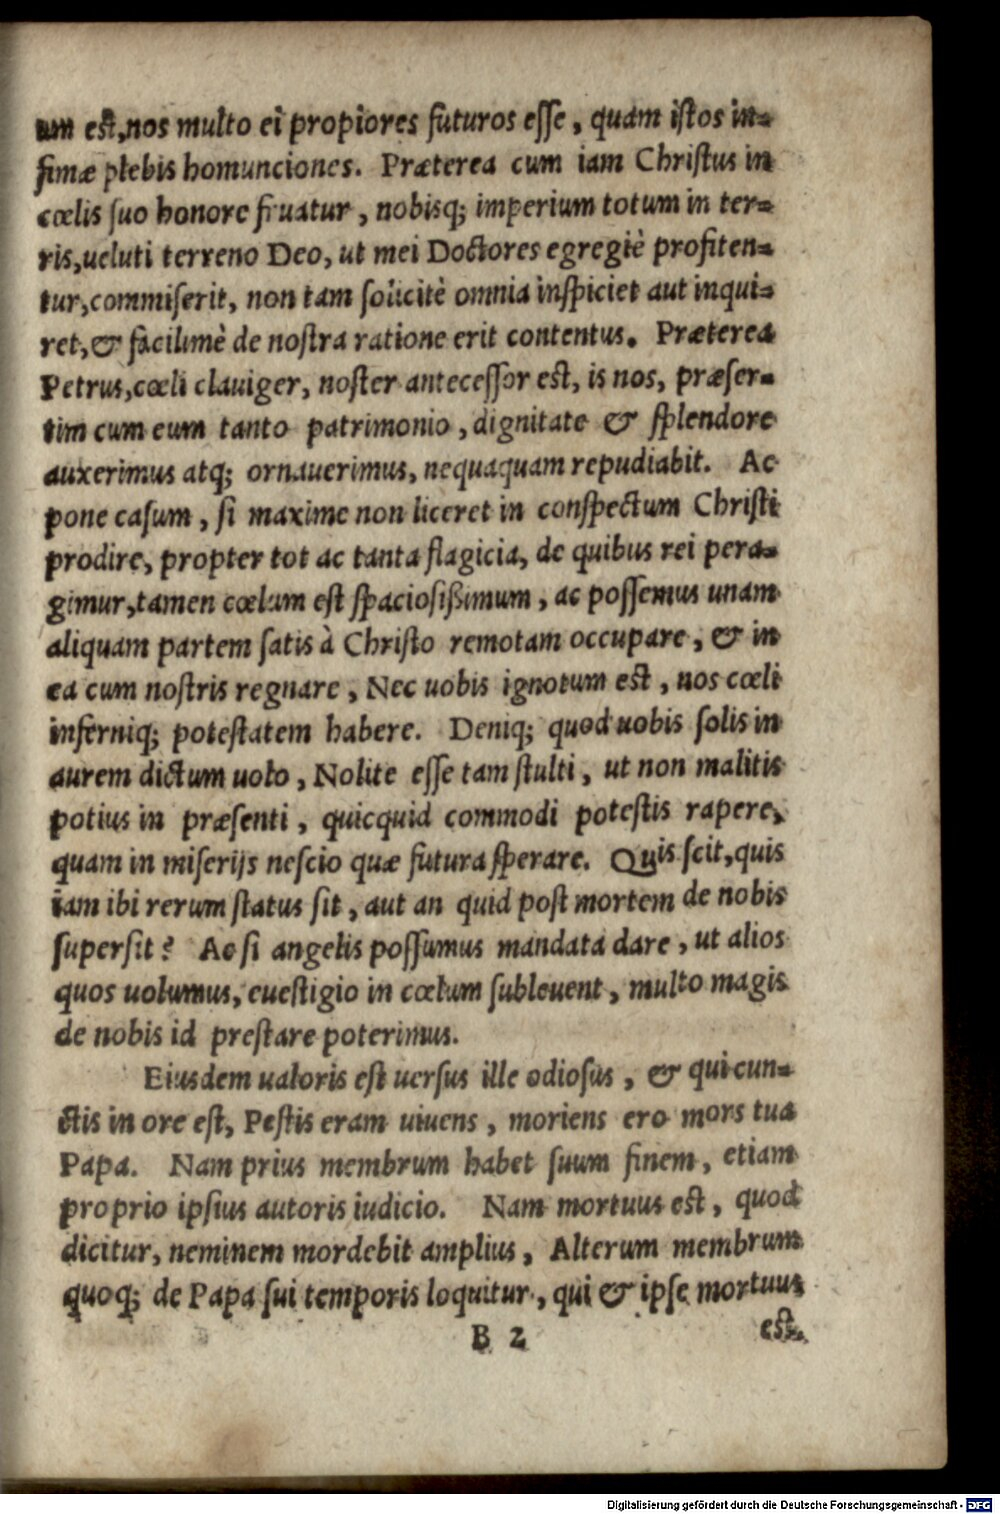 um est, nos multo ei propiores futuros esse, quam istos in=
fimæ plebis homunciones. Præterea cum iam Christus in
cœlis suo honore fruatur, nobisq; imperium totum in ter=
ris, ueluti terreno Deo, ut mei Doctores egregiè profiten=
tur, commiserit, non tam solicitè omnia inspiciet aut inqui=
ret, & facilimè de nostra ratione erit contentus. Præterea
Petrus, cœli clauiger, noster antecessor est, is nos, præser=
tim cum eum tanto patrimonio, dignitate & splendore
auxerimus atq; ornauerimus, nequaquam repudiabit. Ac
pone casum, si maxime non liceret in conspectum Christi
prodire, propter tot ac tanta flagicia, de quibus rei pera=
gimur, tamen cœlum est spaciosißimum, ac possemus unam
aliquam partem satis à Christo remotam occupare, & in
ea cum nostris regnare, Nec uobis ignotum est, nos cœli
inferniq; potestatem habere. Deniq; quod uobis solis in
aurem dictum uolo, Nolite esse tam stulti, ut non malitis
potius in præsenti, quicquid commodi potestis rapere,
quam in miserijs nescio quæ futura sperare. Quis scit, quis
iam ibi rerum status sit, aut an quid post mortem de nobis
supersit? Ac si angelis possumus mandata dare, ut alios
quos uolumus, euestigio in cœlum subleuent, multo magis
de nobis id prestare poterimus.
Eiusdem ualoris est uersus ille odiosus, & qui cun=
ctis in ore est, Pestis eram uiuens, moriens ero mors tua
Papa. Nam prius membrum habet suum finem, etiam
proprio ipsius autoris iudicio. Nam mortuus est, quod
dicitur, neminem mordebit amplius, Alterum membrum
quoq; de Papa sui temporis loquitur, qui & ipse mortuus
B 2 est.
Digitalisierung gefördert durch die Deutsche Forschungsgemeinschaft - DFG